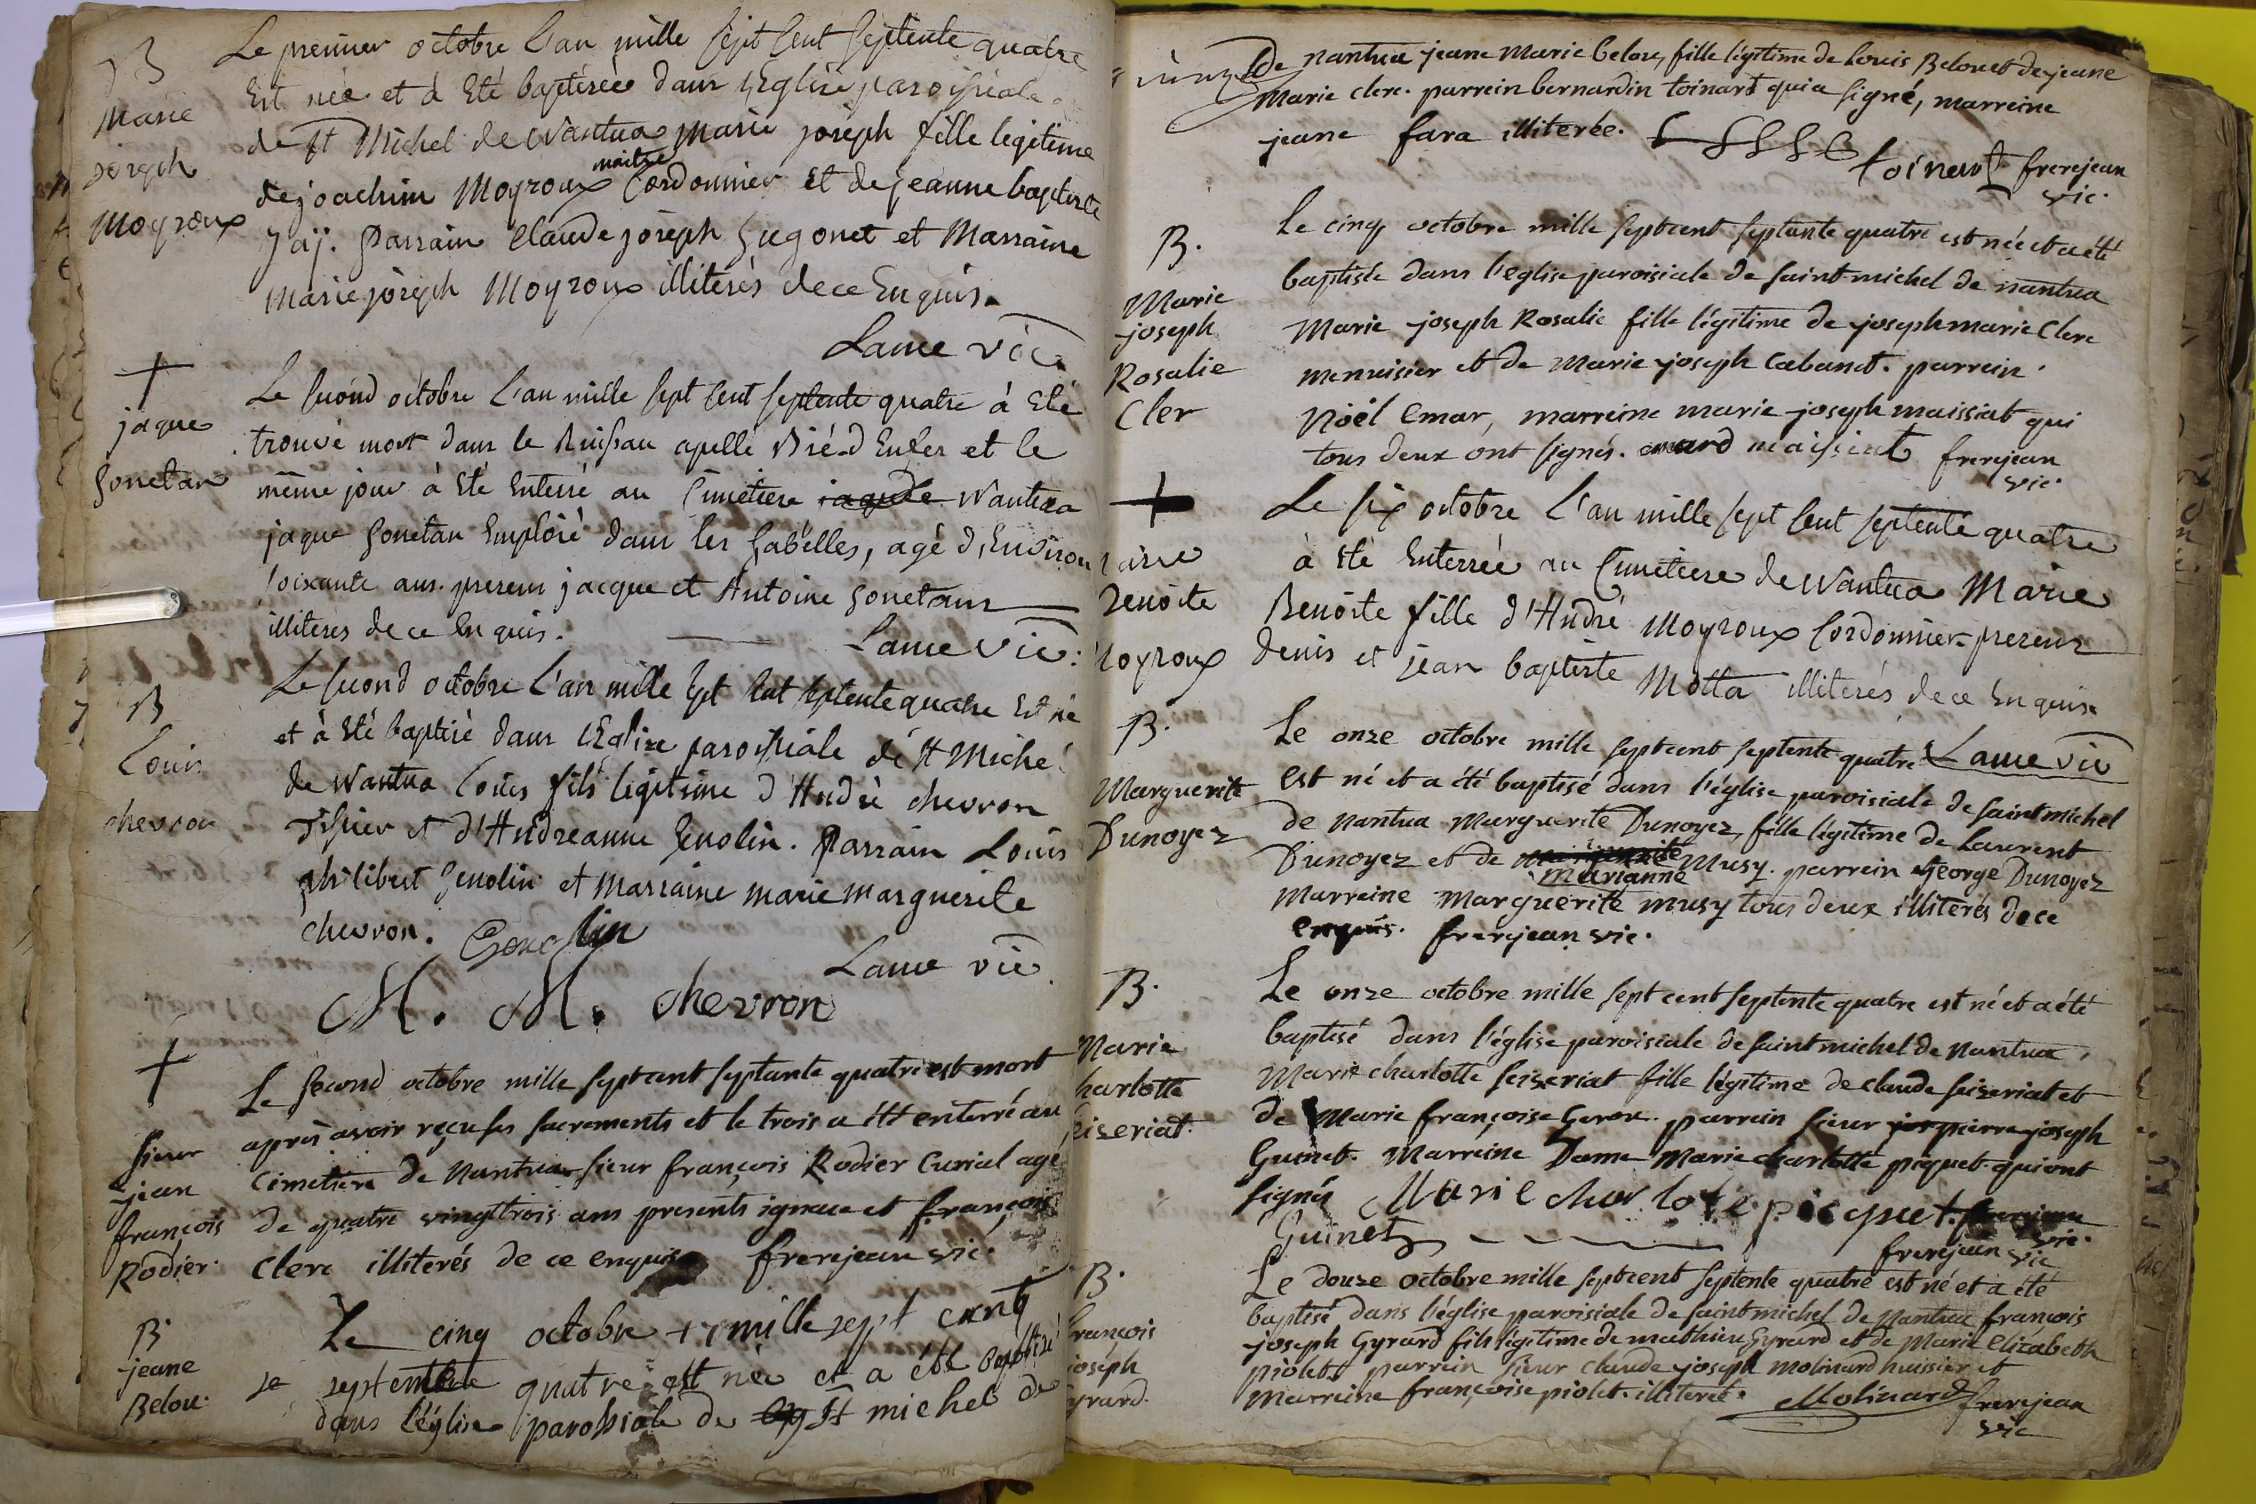 B
Marie
joseph
Moyroux
Le premier octobre l'an mille sept cent septente quatre
Est née et à Eté baptisée dans l'Eglise paroissiale
de St Michel de Nantua Marie joseph fille legitime
de joachim Moyroux maitre Cordonnier et de jeanne baptiste
jaÿ. Parrain Claude joseph Gugonet et Marraine
Marie joseph Moyroux illiterés de ce Enquis.
Lame vic.
+
jaque
Gonetan
Le second octobre l'an mille sept cent septente quatre à Eté
trouvé mort dans le Ruissau apellé Pié d'Enfer et le
même jour à Eté Enterré au Cimetiere Nantua
jaque Gonetan Emploié dans les Gabélles, agé d'Environ
soixante ans. presens jacque et Antoine Gonetans
illiteres de ce Enquis.
Lame vic.
B
Louis
chevron
Le second octobre l'an mille sept cent septente quatre Est né
et à Eté baptisé dans l'Eglise paroissiale de St Michel
de Nantua Louis fils legitime d'André chevron
Tissier et d'Andreanne Genolin. Parrain Louis
philibert Genolin et Marraine marie marguerite
chevron. Genolin
Lame vic.
M. M. chevron
+
sieur
jean
françois
Rodier.
Le second octobre mille septcent septante quatre est mort
après avoir reçu ses sacrements et le trois a été enterré au
cimetière de Nantua sieur françois Rodier Curial agé
de quatre vingt trois ans presents ignace et françois
Clerc illiterés de ce enquis frerejean vic.
B
jeane
Belou.
Le cinq octobre mille sept cent
septembre quatre est née et a été baptisé
dans l'église paroissiale de St michel de
de nantua jeane Marie belou, fille légitime de Louis Belou et de jeane
Marie clerc. parrein bernardin toinart qui a signé, marreine
jeane fara illiterée.
toinart frerejean
vic.
B.
Marie
joseph
Rosalie
Cler
Le cinq octobre mille septcent septante quatre est née et a été
baptisée dans l'eglise paroisiale de saint-michel de nantua
Marie joseph Rosalie fille légitime de joseph marie Clerc
menuisier et de Marie joseph Cabanet. parrein
Noël Emar, marreine marie joseph maissiat qui
tous deux ont signés. emard maissiat frerejean
vic.
+
Marie
Benoite
Moyroux
Le six octobre l'an mille sept cent septente quatre
à Eté Enterrée au Cimetiere de Nantua Marie
Benoite fille d'André Moyroux Cordonnier presens
denis et jean baptiste Motta illiterés de ce Enquis
Lame vic
B.
Marguerite
Dunoyez
Le onze octobre mille septcent septente quatre
est né et a été baptisé dans l'église paroisiale de saint michel
de Nantua Marguerite Dunoyez, fille légitime de Laurent
Dunoyez et de marguerite Musy. parrein George Dunoyez
Marianne
marreine Marguerite musy tous deux illiterés de ce
enquis. frerejean vic.
B.
Marie
charlotte
seizeriat.
Le onze octobre mille sept cent septente quatre est né et a été
baptisé dans l'église paroisiale de saint michel de Nantua
Marie charlotte seizeriat fille légitime de claude seizeriat et
de Marie françoise Gerox. parrein sieur pierre joseph
Guinet. Marreine Dame Marie charlotte piquet qui ont
signés Marie charlotte picquet.
Guinet
frerejean vic
B.
françois
joséph
Gyrard.
Le douze octobre mille septcent septente quatre est né et a été
baptisé dans l'église paroisiale de saint michel de Nantua françois
joseph Gyrard fils légitime de mathieu Gyrard et de Marie Elizabeth
piolet parrein sieur claude joseph molinard huissier et
Marreine françoise piolet. illiterée. Molinard frerejean
vic